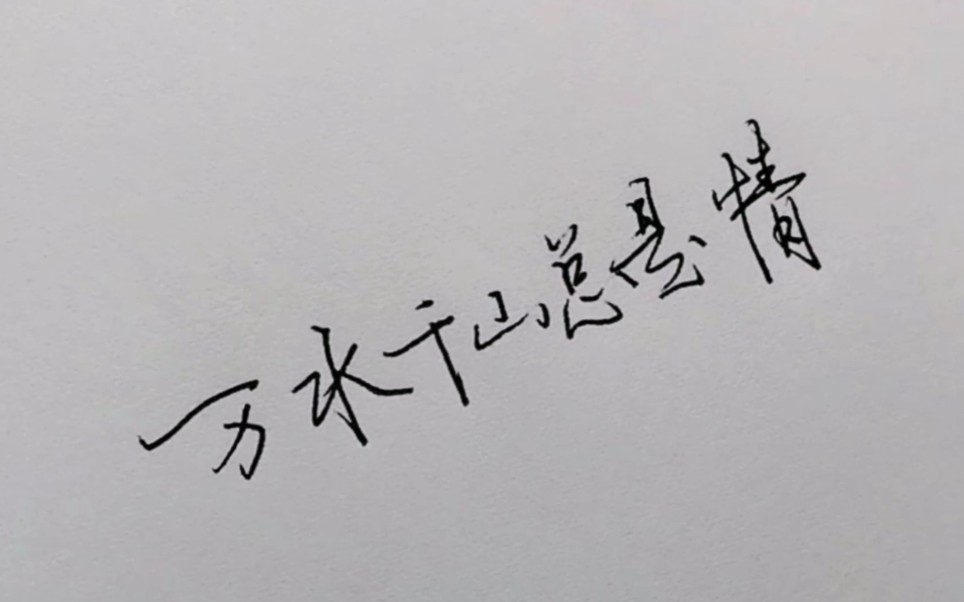 万水千山总悬情